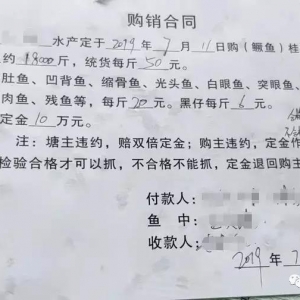 购销合同
水产定于2019年7月11日购(鳜鱼)桂
约18000斤,统货每斤50元。
肚鱼、凹背鱼、缩骨鱼、光头鱼、白眼鱼、突眼鱼、
肉鱼、残鱼等,每斤20元。黑仔每斤6元。
定金10万元。
注:塘主违约,赔双倍定金;购主违约,定金作
检验合格才可以抓,不合格不能抓,定金退回购主
付款人:
鱼 中:
收款人:
2019年7